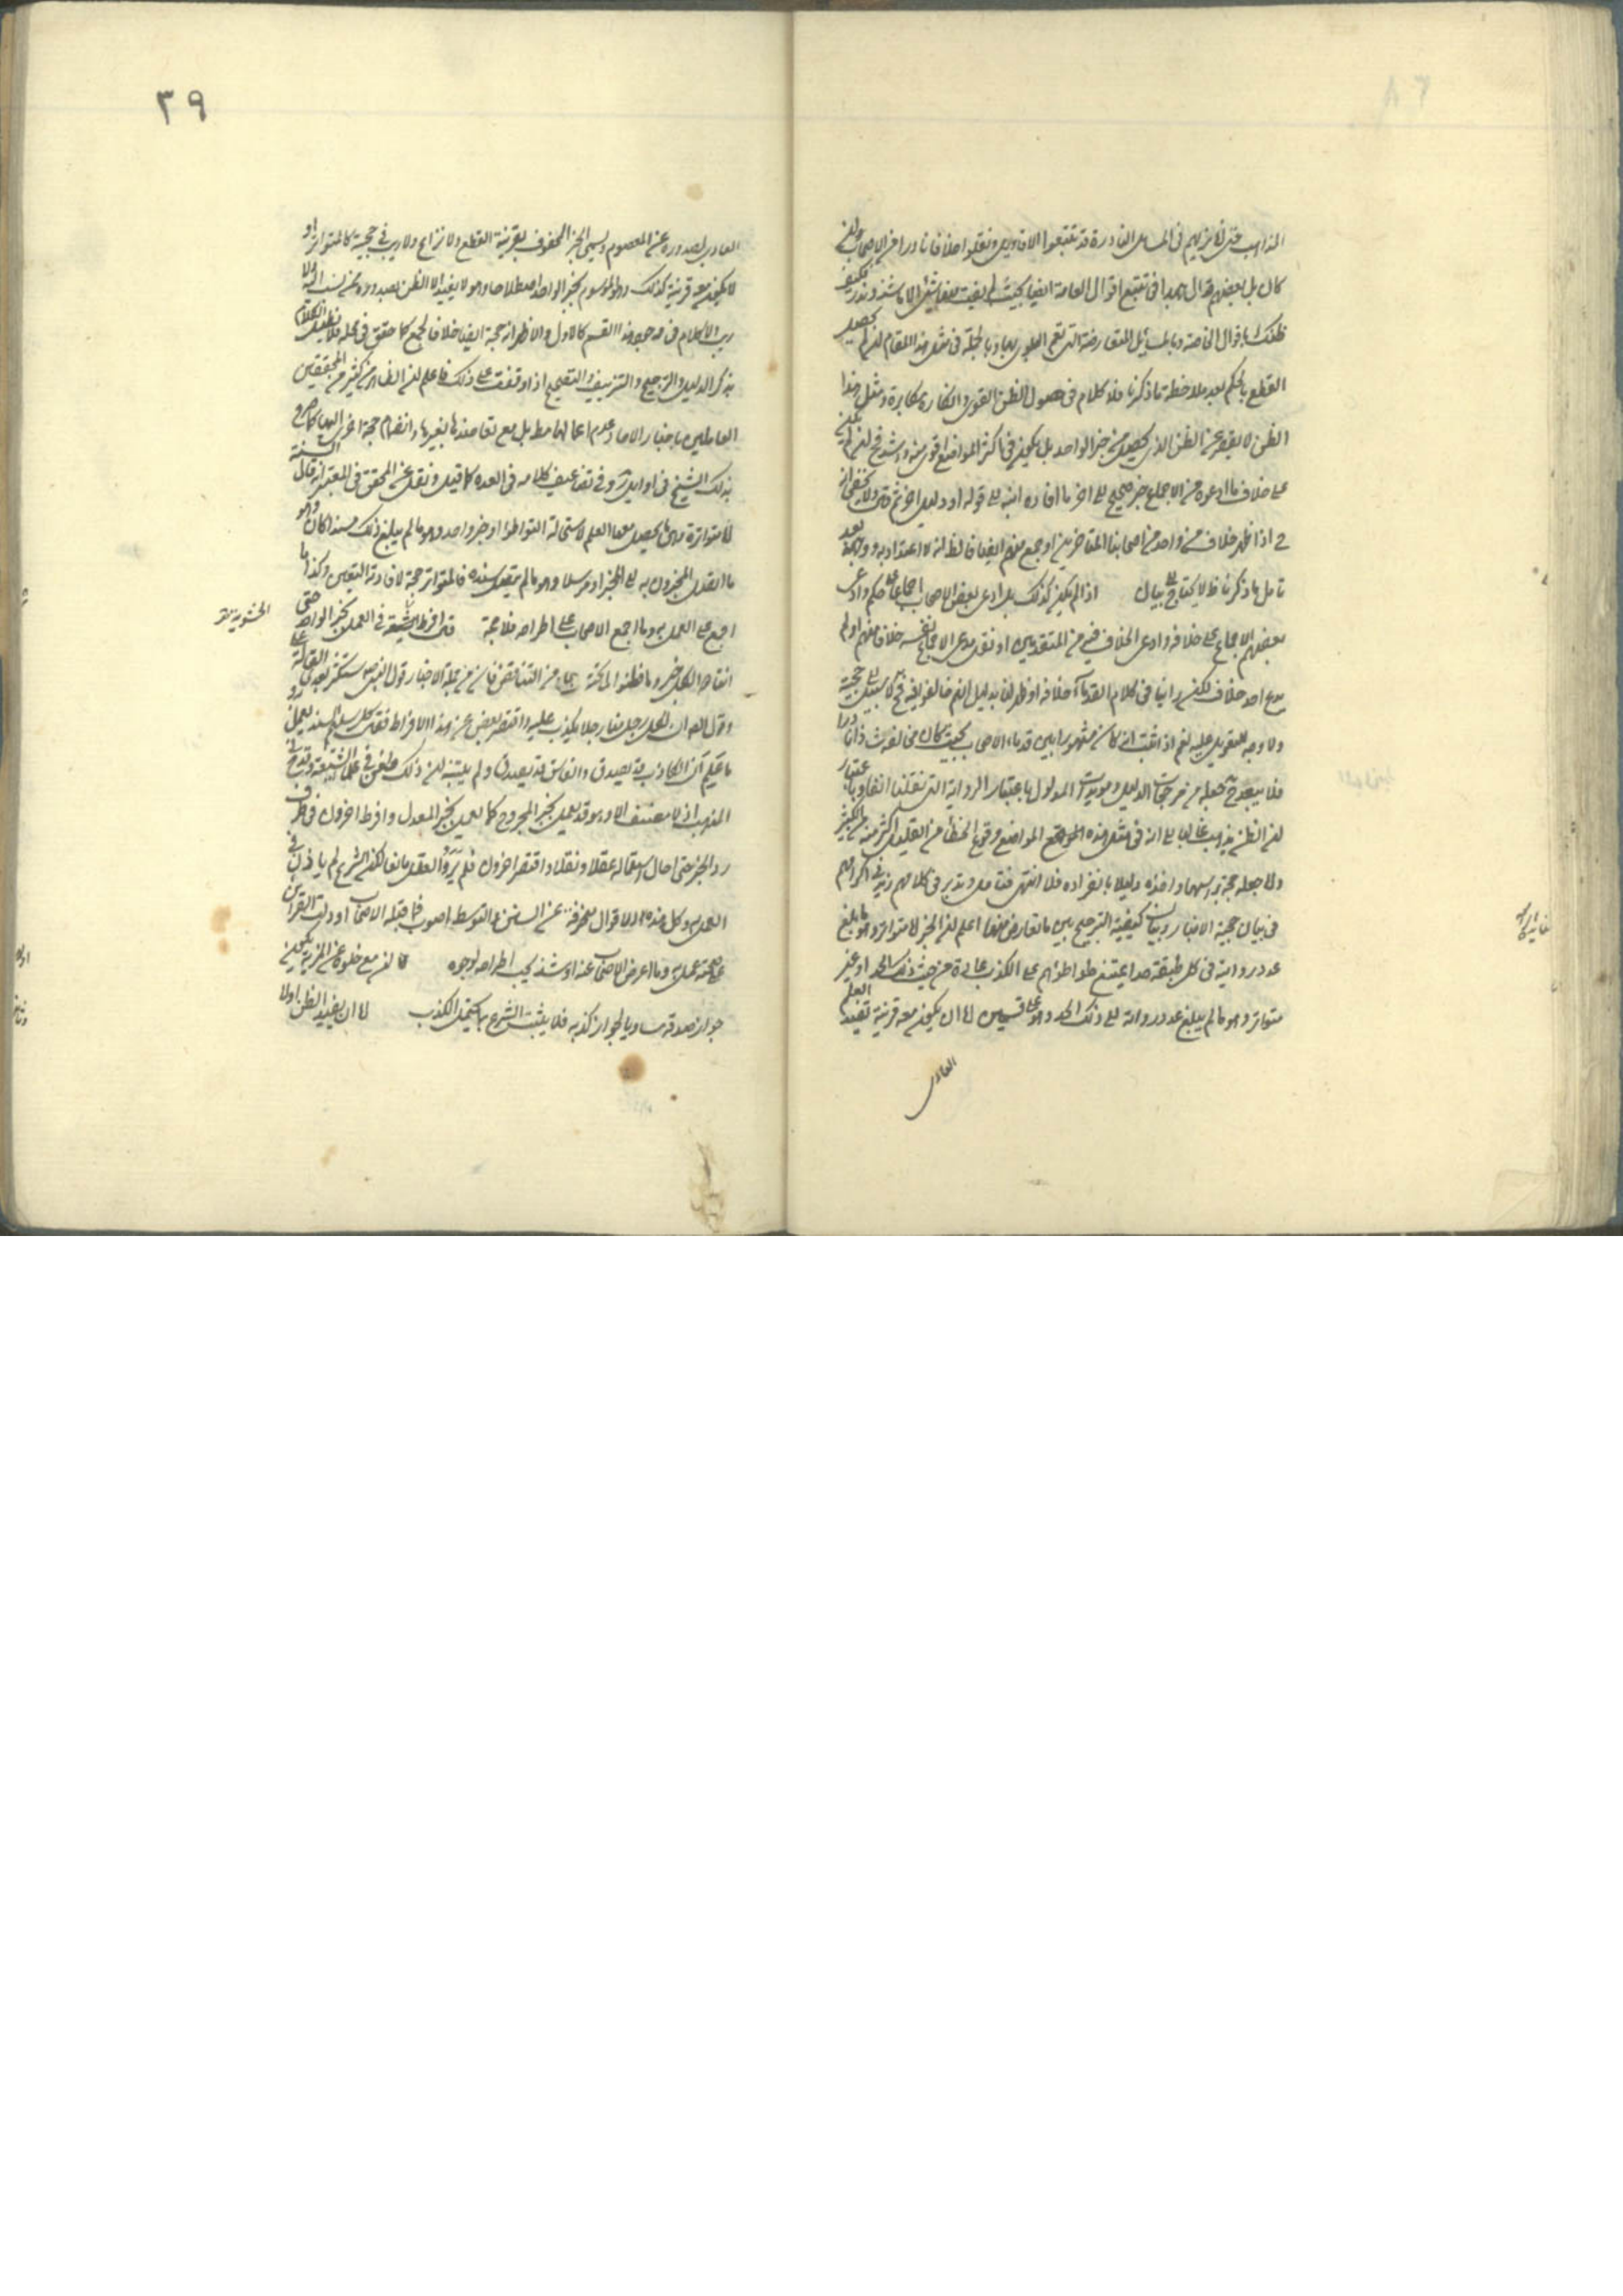 المذاهب حتى نريهم في المسائل النادرة قد تتبعوا الاقاويل ونقلوا خلافا نادرا من الاصحاب ولئن
كان بل بعضهم في تتبع اقوال العامة ايضا بحيث لم يفت الا ما شذ وندر فكيف
ظنك باقوال الخاصة وبالمسائل المتعارضة التي تعم البلوى بها وبالجملة في مثل هذا المقام لئن لم يحصل
القطع بالحكم بعد ملاحظة ما ذكرنا فلا كلام في حصول الظن القوى وانكاره مكابرة ومثل هذا
الظن لا يقصر عن الظن الذى يحصل من خبر الواحد بل يكون في اكثر المواضع اقوى منه واشد
على خلاف ما ادعوه من الاجماع خبر صحيح الى اخر ما افاده
اذا ظهر خلاف من واحد من اصحابنا المتاخرين او جمع منهم ايضا فالظ انه لا اعتداد به ووجهه بعد
تامل ما ذكرنا ظ لا يحتاج الى بيان اذا لم يكن كذلك بل ادعى بعض الاصحاب اجماعا على حكم وادعى
بعضهم الاجماع على خلافه وادعى الخلاف فيه من المتقدمين او نقل مدعى الاجماع نفسه خلافا منهم او لم
يدع احد خلاف لكن راينا في كلام القدماء خلافه او ظهر لنا بدليل انهم مخالفون فيه فح لا سبيل الى حجية
ولا وجه للتعويل عليه نعم اذا ثبت انه كان مشهورا بين قدماء الاصحاب بحيث كان مخالفه شاذا نادرا
فلا يبعد ح جعله من مرجحات الدليل ومويدات المدلول باعتبار الرواية التي نقلنا انفا وباعتبار
ان الظن يذهب غالبا الى ان في مثل هذه المواضع وقوع الخطأ من القليل اكثر منه من الكثير
واما جعله حجة براسها واخذه دليلا بانفراده فلا انتهى فتامل وتدبر في كلامهم زيد في اكرامهم
في بيان حجية الاخبار وبيان كيفية الترجيح بين ما تعارض منها اعلم ان الخبر اما متواتر وهو ما بلغ
عدد رواته في كل طبقة حدا يمتنع تواطؤهم على الكذب عادة من حيث ذلك الحد او غير
متواتر وهو ما لم يبلغ عدد رواته الى ذلك الحد وهو على قسمين اما ان يكون معه قرينة تفيد العلم
العادى
٣٩
العادى بصدوره عن المعصوم ويسمى الخبر المحفوف بقرينة القطع ولا نزاع ولا ريب في حجيته كالمتواتر او
لا يكون معه قرينة كذلك وهو الموسوم بخبر الواحد اصطلاحا وهو لا يفيد الا الظن بصدوره عمن نسب اليه ولا
ريب ولا كلام في وجود هذا القسم كالاول والاظهر انه حجة ايضا خلافا لجمع كما حقق في محله فلا نطيل الكلام
بذكر الدليل والترجيح والتزييف والتقبيح اذا وقفت على ذلك فاعلم ان الظاهر من كثير من المحققين
العاملين باخبار الاحاد عدم اعمالها مط بل مع تعاضدها بغيرها وانضمام حجة اخرى اليها كما صرح
بذلك الشيخ في اوايل وفي تضاعيف كلامه في العدة كما قيل ونقل عن المحقق في المعتبر انه قال السنة
اما متواترة وهى ما يحصل معها العلم لاستحالة التواطؤ او خبر واحد وهو ما لم يبلغ ذلك مسندا كان وهو
ما اتصل المخبرون به الى المخبر او مرسلا وهو ما لم يتصل سنده فالمتواتر حجة لافادته اليقين وكذا ما
اجمع على العمل به وما اجمع الاصحاب على اطراحه فلا حجة قال افرط الحشوية في العمل بخبر الواحد حتى
انقادوا لكل خبر وما فطنوا ما تحته من التناقض فان من جملة الاخبار قول النبى ص ستكثر بعدى القالة على
وقول الصادق ان لكل رجل منا رجلا يكذب عليه واقتصر بعض عن هذا الافراط فقال كل سليم السند يعمل به و
ما علم ان الكاذب قد يصدق والفاسق قد يصدق ولم يتنبه ان ذلك طعن في علماء الشيعة وقدح في
المذهب اذ لا مصنف الا وهو قد يعمل بخبر المجروح كما يعمل بخبر المعدل وافرط اخرون في طرف
رد الخبر حتى احال استعماله عقلا ونقلا واقتصر اخرون فلم يروا العقل مانعا لكن الشرع لم ياذن في
العمل به وكل هذه الاقوال منحرفة عن السنن والتوسط اصوب فما قبله الاصحاب او دلت القراين
على صحته عمل به وما اعرض الاصحاب عنه او شذ يجب اطراحه لوجوه ا ان مع خلوه عن المزية يكون
جواز صدقه مساويا لجواز كذبه فلا يثبت الشرع بما يحتمل الكذب اما ان يفيد الظن اولا
الحشوية